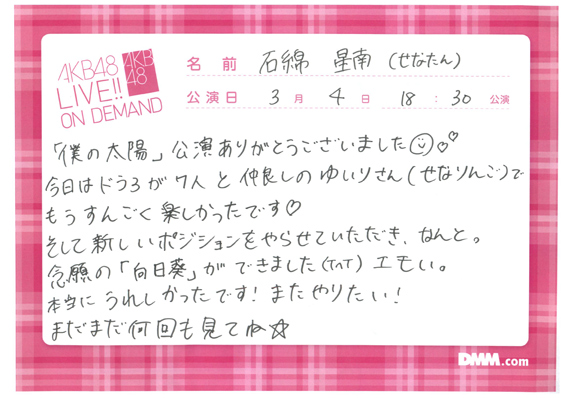 AKB48
LIVE!!
ON DEMAND
AKB
48
名前 石綿 星南 (せなたん)
公演日 3月 4日 18:30 公演
「僕の太陽」公演ありがとうございました
今日はドラ3が7人と仲良しのゆいりさん(せなりんご)で
もうすんごく楽しかったです♡
そして新しいポジションをやらせていただき、なんと。
念願の「向日葵」ができました(TnT)エモい。
本当にうれしかったです!またやりたい!
まだまだ何回も見てね☆
DMM.com